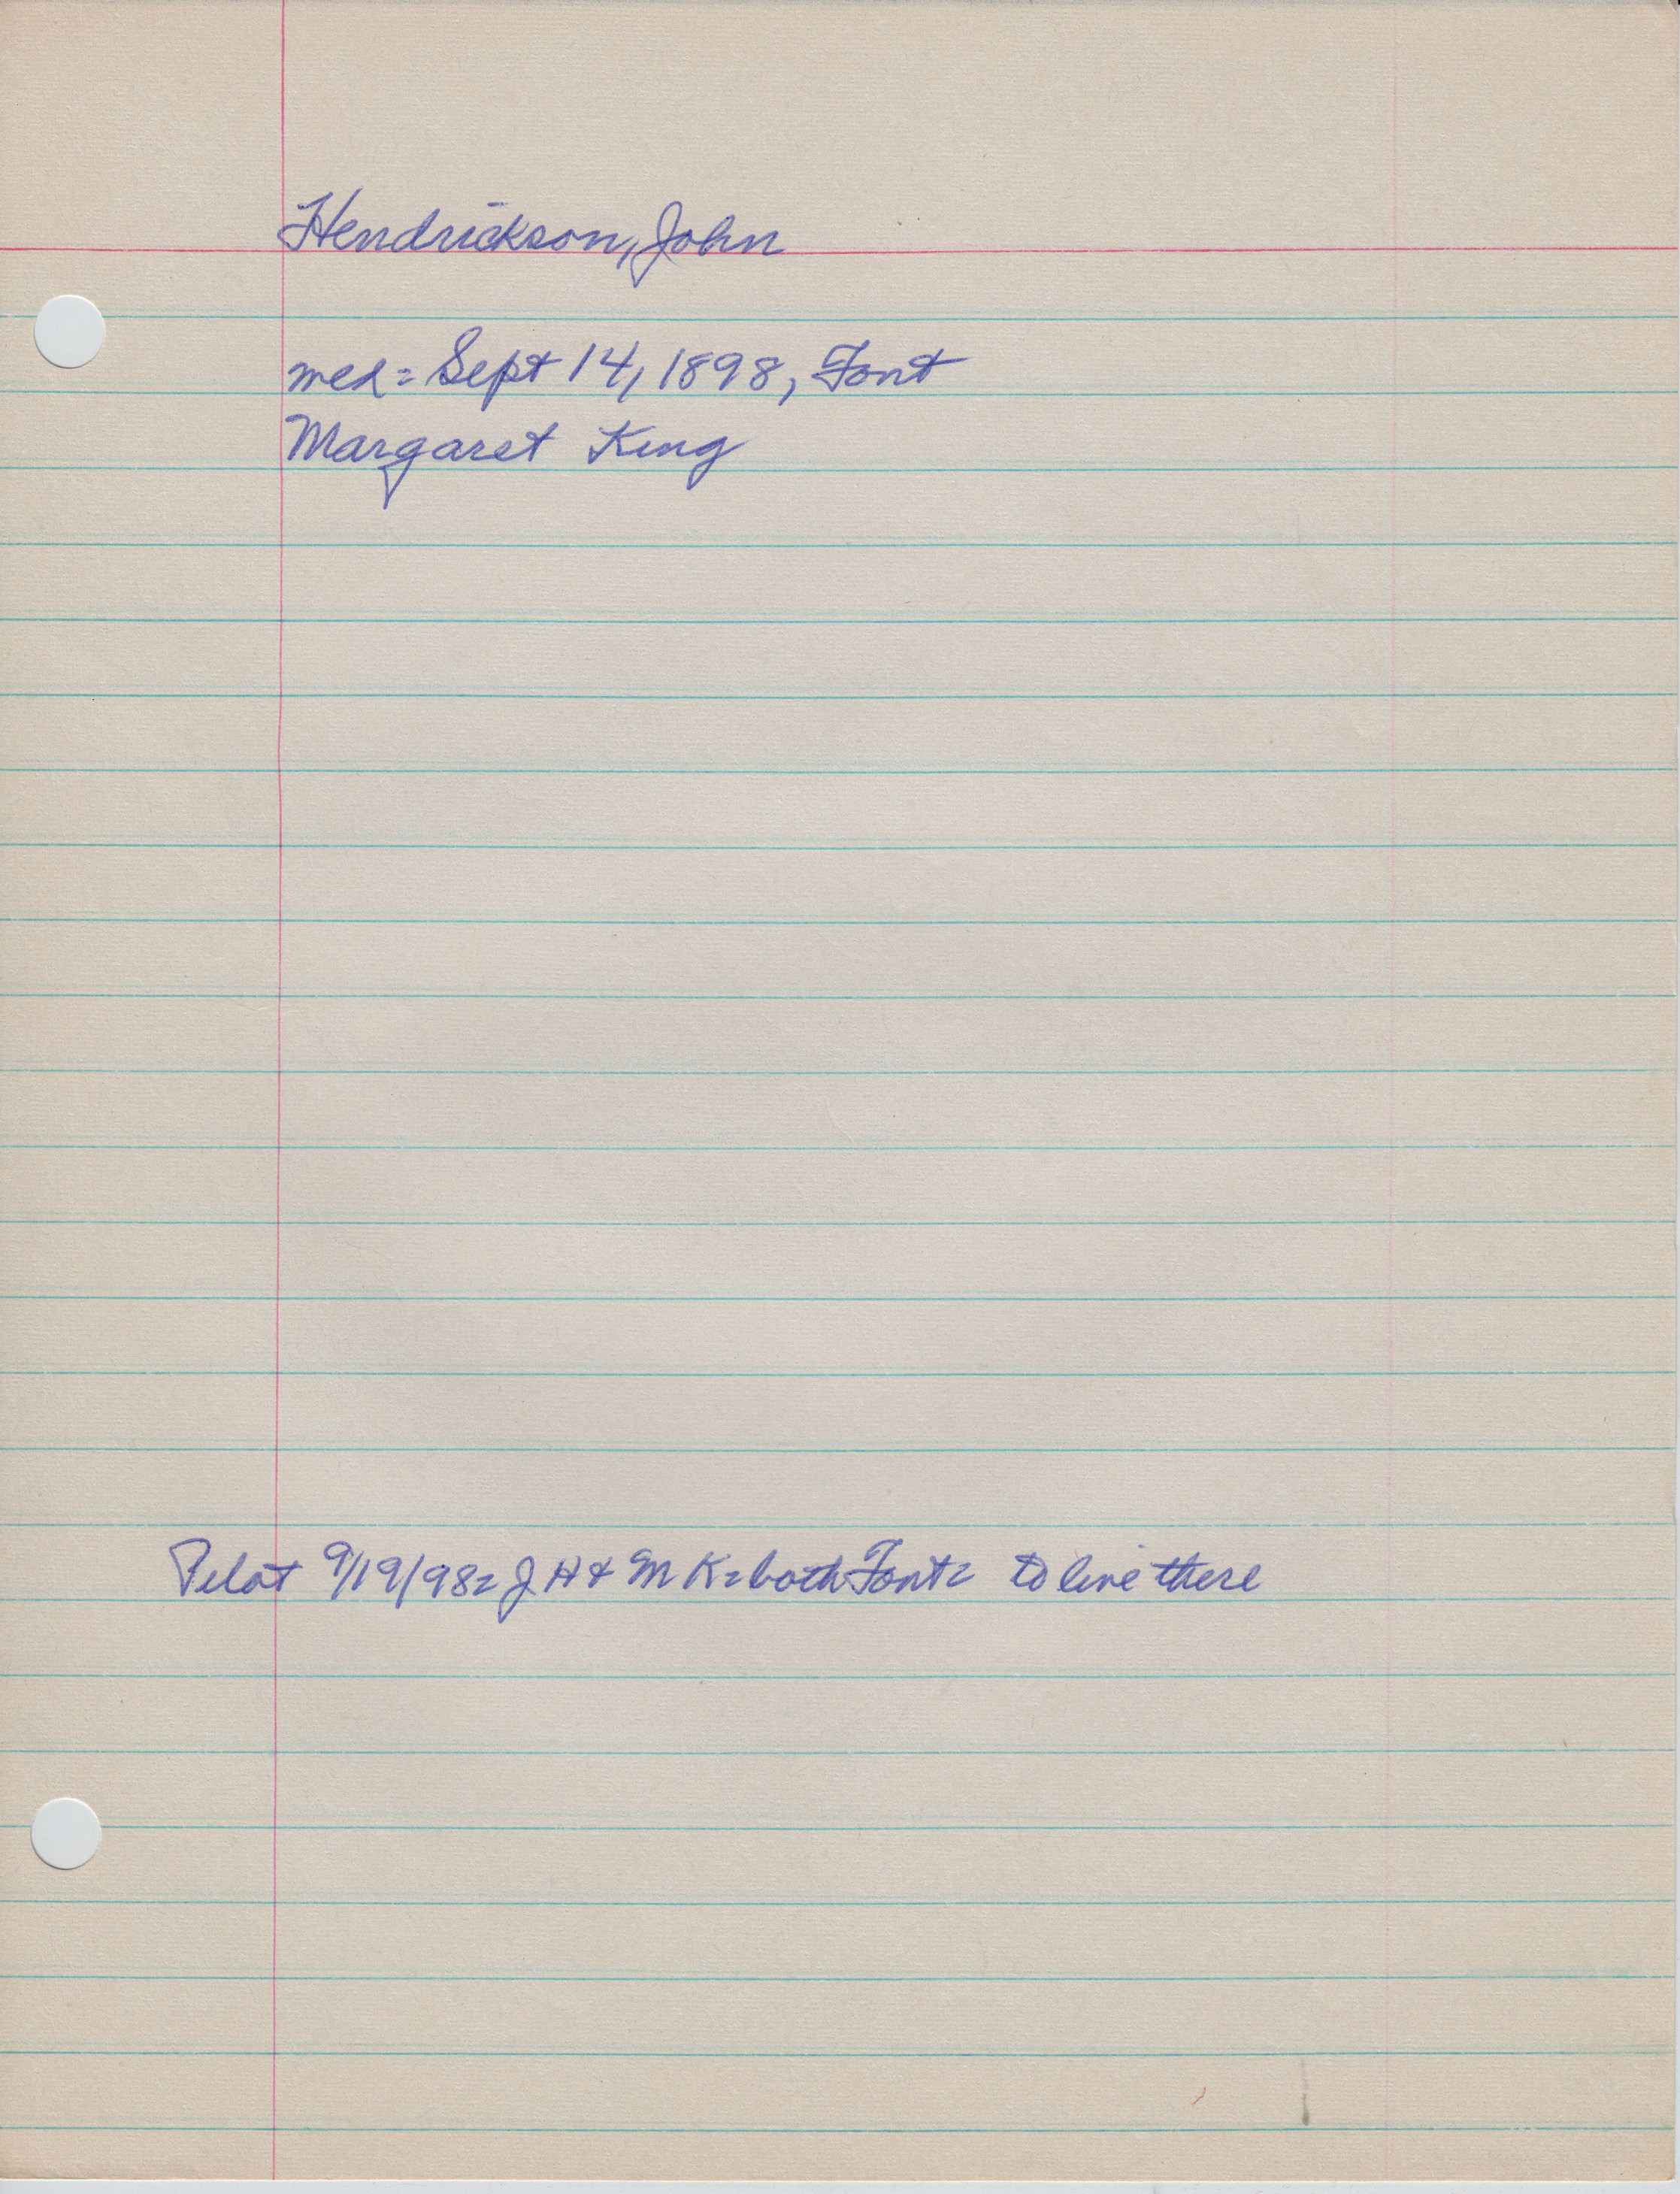 Hendrickson, John
med = Sept 14, 1898, Font
Margaret King
Pilot 9/19/98 = J H & M K = both Font = to live there